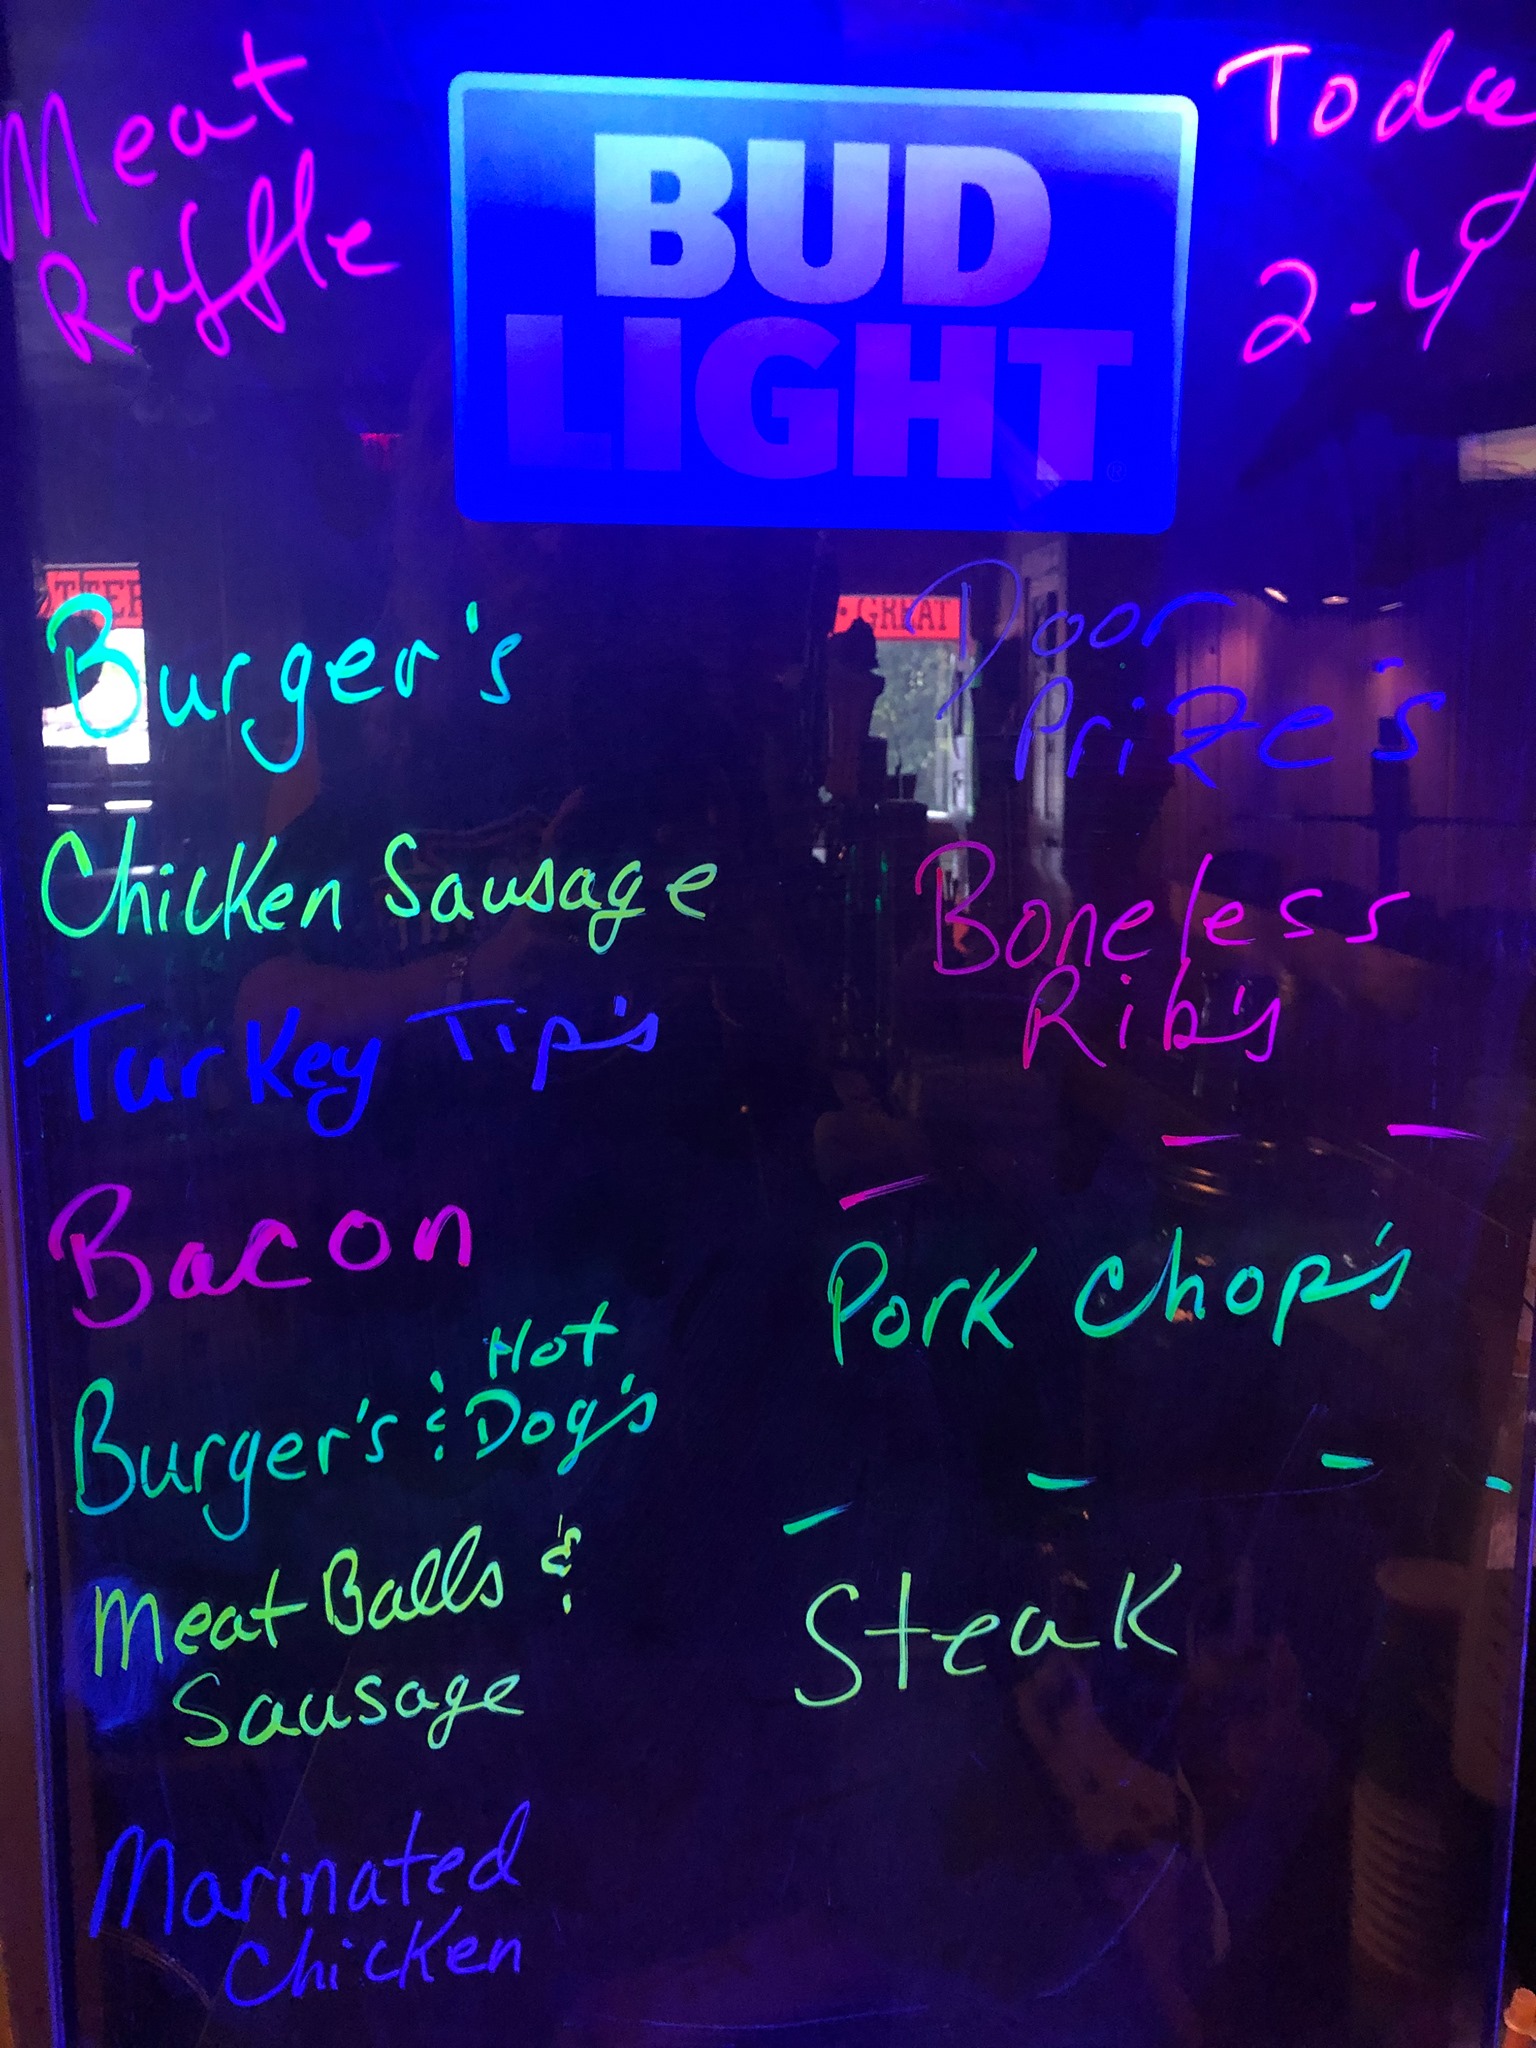 Meat
Raffle
BUD
LIGHT
®
Today
2-4
Burger's
Chicken Sausage
Turkey Tip's
Bacon
Burger's & Hot
Dog's
Meat Balls &
Sausage
Marinated
Chicken
GREAT
Door
Prize's
Boneless
Rib's
Pork Chop's
Steak